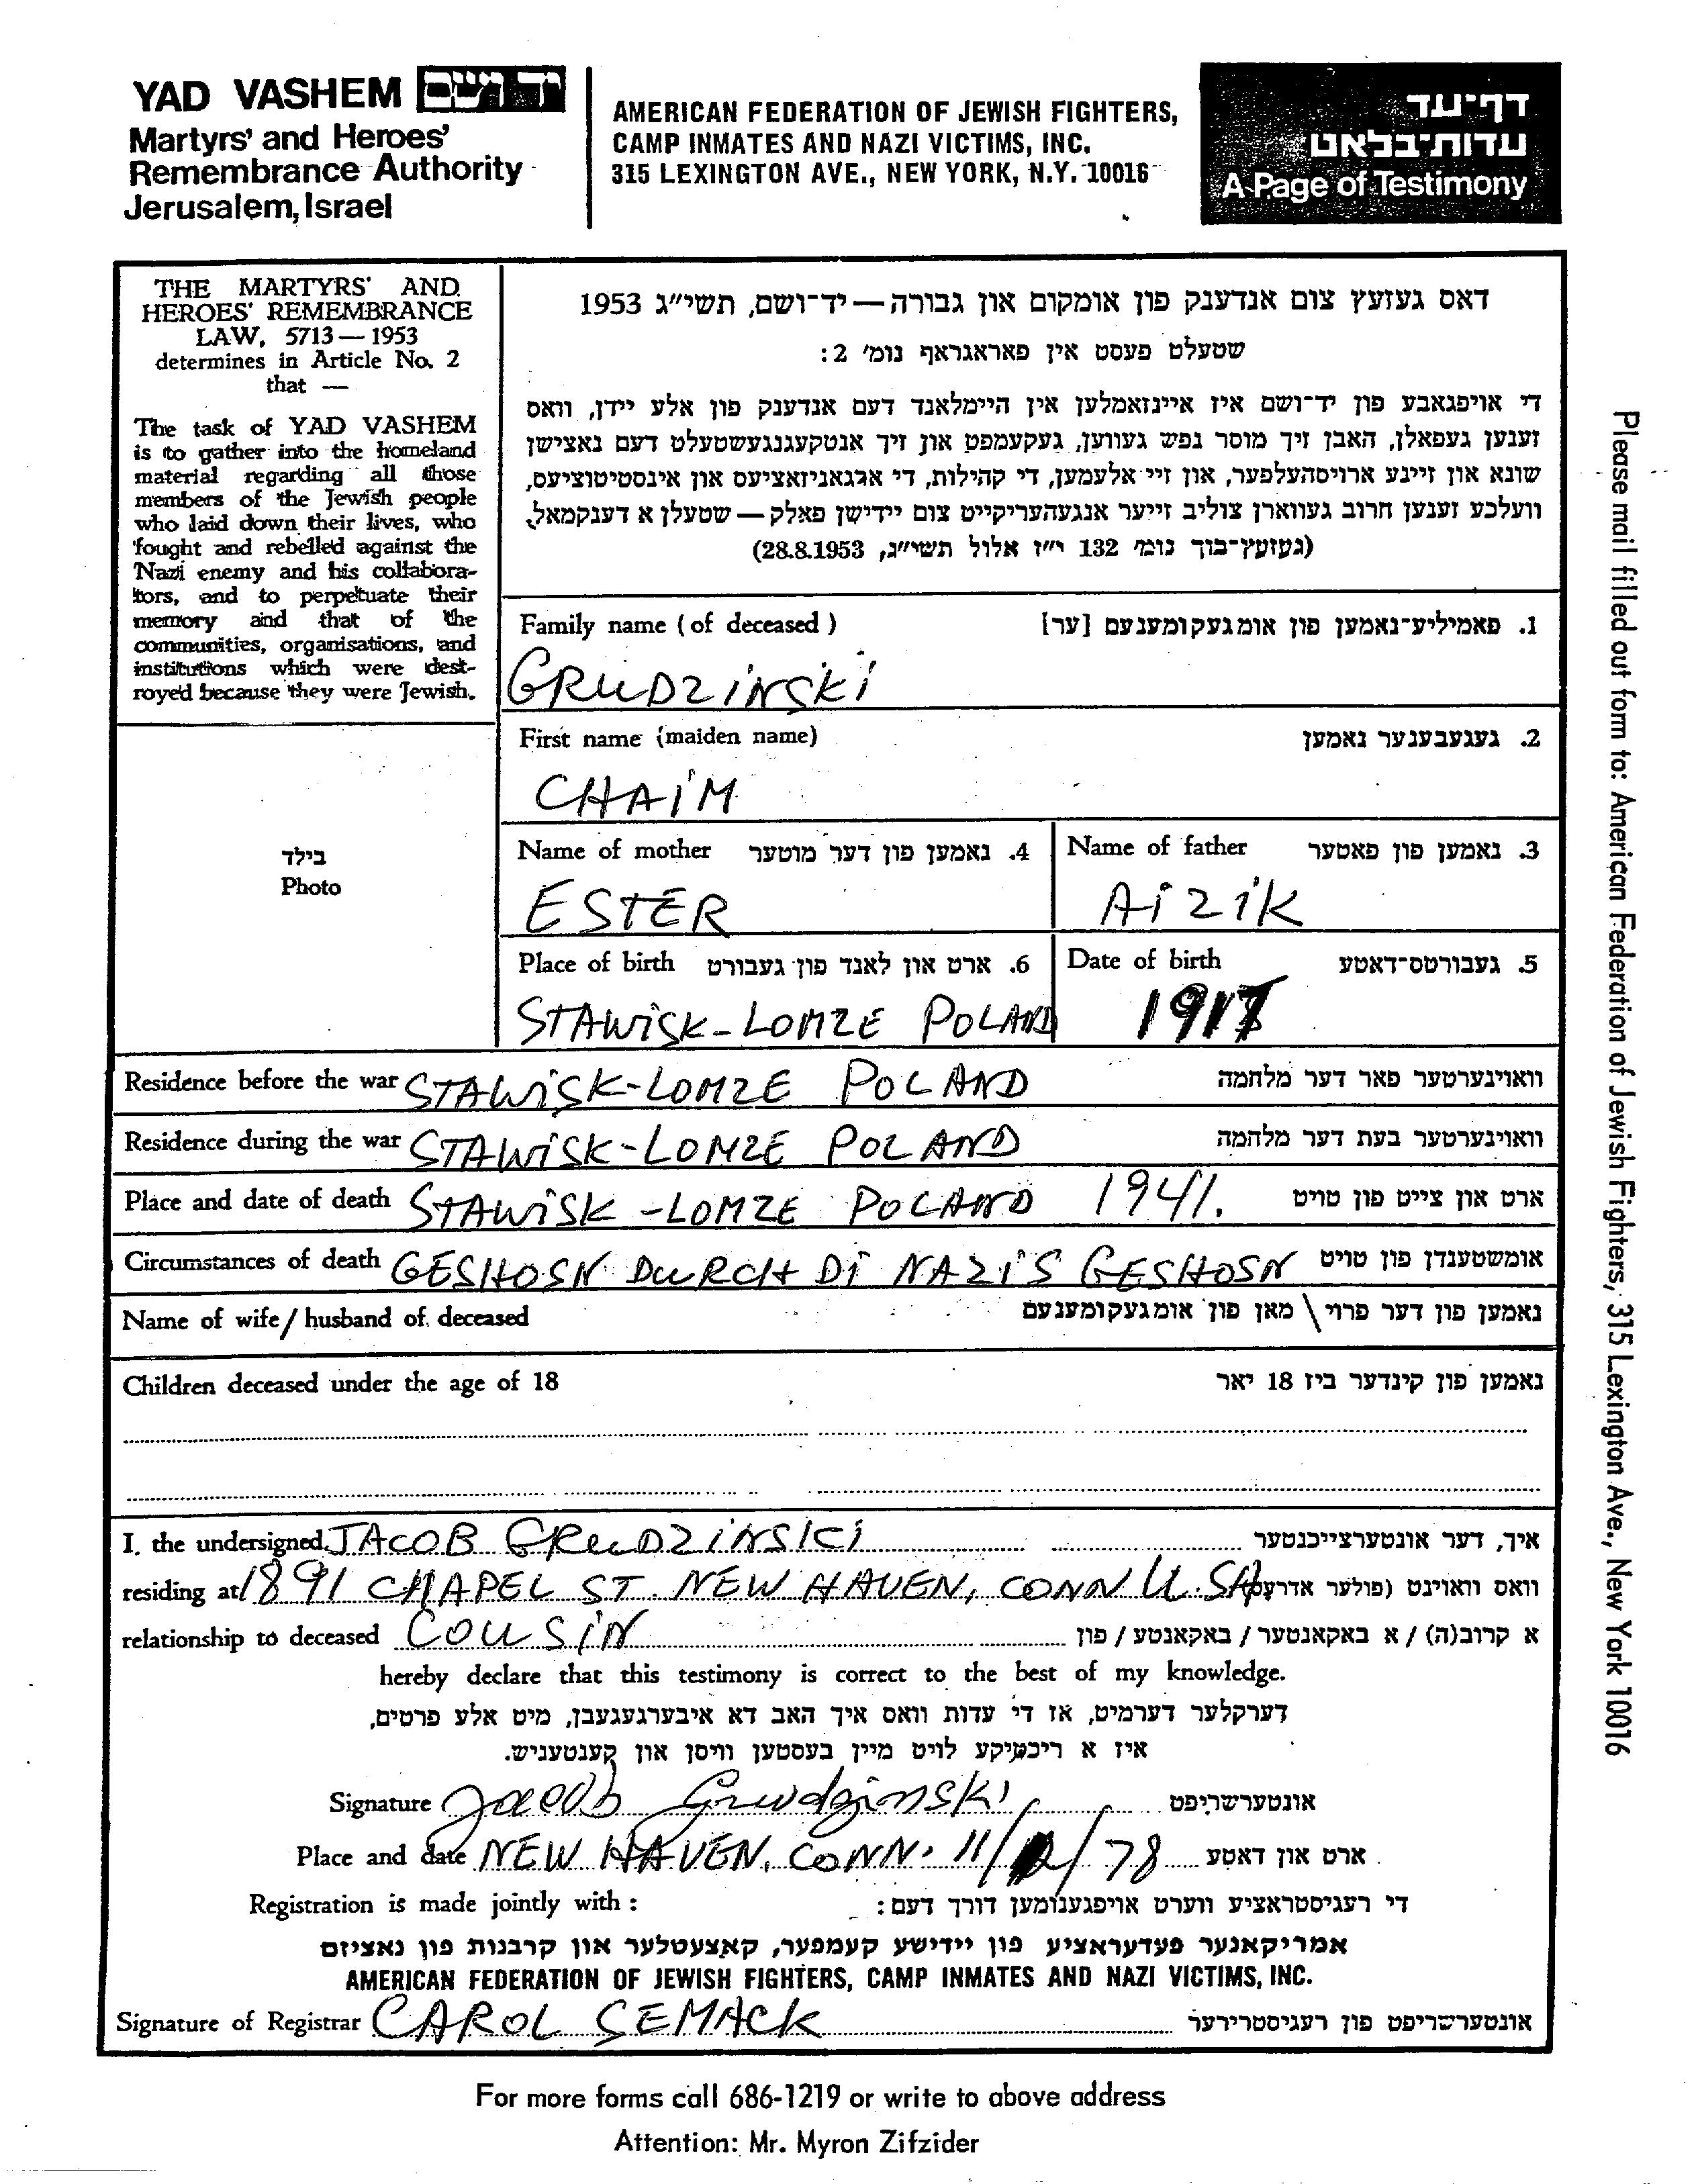 YAD VASHEM יד ושם
Martyrs' and Heroes'
Remembrance Authority
Jerusalem, Israel
AMERICAN FEDERATION OF JEWISH FIGHTERS,
CAMP INMATES AND NAZI VICTIMS, INC.
315 LEXINGTON AVE., NEW YORK, N.Y. 10016
דף־עד
עדות־בלאט
A Page of Testimony
THE MARTYRS' AND
HEROES' REMEMBRANCE
LAW, 5713 — 1953
determines in Article No. 2
that —
The task of YAD VASHEM
is to gather into the homeland
material regarding all those
members of the Jewish people
who laid down their lives, who
fought and rebelled against the
Nazi enemy and his collabora-
tors, and to perpetuate their
memory and that of the
communities, organisations, and
institutions which were dest-
royed because they were Jewish.
דאס געזעץ צום אנדענק פון אומקום און גבורה — יד־ושם, תשי"ג 1953
שטעלט פעסט אין פאראגראף נומ' 2:
די אויפגאבע פון יד־ושם איז איינזאמלען אין היימלאנד דעם אנדענק פון אלע יידן, וואס
זענען געפאלן, האבן זיך מוסר נפש געווען, געקעמפט און זיך אנטקעגנגעשטעלט דעם נאצישן
שונא און זיינע ארויסהעלפער, און זיי אלעמען, די קהילות, די ארגאניזאציעס און אינסטיטוציעס,
וועלכע זענען חרוב געווארן צוליב זייער אנגעהעריקייט צום יידישן פאלק — שטעלן א דענקמאל.
(געזעץ־בוך נומ' 132 י"ז אלול תשי"ג, 28.8.1953)
בילד
Photo
Family name (of deceased) 1. פאמיליע־נאמען פון אומגעקומענעם [ער]
GRUDZINSKI
First name (maiden name) 2. געגעבענער נאמען
CHAIM
Name of mother 4. נאמען פון דער מוטער Name of father 3. נאמען פון פאטער
ESTER AIZIK
Place of birth 6. ארט און לאנד פון געבורט Date of birth 5. געבורטס־דאטע
STAWISK-LOMZE POLAND 1917
Residence before the war STAWISK-LOMZE POLAND וואוינערטער פאר דער מלחמה
Residence during the war STAWISK-LOMZE POLAND וואוינערטער בעת דער מלחמה
Place and date of death STAWISK-LOMZE POLAND 1941. ארט און צייט פון טויט
Circumstances of death GESHOSN DURCH DI NAZIS GESHOSN אומשטענדן פון טויט
Name of wife / husband of deceased נאמען פון דער פרוי \ מאן פון אומגעקומענעם
Children deceased under the age of 18 נאמען פון קינדער ביז 18 יאר
I. the undersigned JACOB GRUDZINSKI איך, דער אונטערצייכנטער
residing at 1891 CHAPEL ST. NEW HAVEN, CONN U.SA וואס וואוינט (פולער אדרעס)
relationship to deceased COUSIN א קרוב(ה) / א באקאנטער / באקאנטע / פון
hereby declare that this testimony is correct to the best of my knowledge.
דערקלער דערמיט, אז די עדות וואס איך האב דא איבערגעגעבן, מיט אלע פרטים,
איז א ריכטיקע לויט מיין בעסטען וויסן און קענטעניש.
Signature Jacob Grudzinski אונטערשריפט
Place and date NEW HAVEN, CONN. 11/12/78 ארט און דאטע
Registration is made jointly with : די רעגיסטראציע ווערט אויפגענומען דורך דעם :
אמריקאנער פעדעראציע פון יידישע קעמפער, קאצעטלער און קרבנות פון נאציזם
AMERICAN FEDERATION OF JEWISH FIGHTERS, CAMP INMATES AND NAZI VICTIMS, INC.
Signature of Registrar CAROL SEMACK אונטערשריפט פון רעגיסטרירער
For more forms call 686-1219 or write to above address
Attention: Mr. Myron Zifzider
Please mail filled out form to: American Federation of Jewish Fighters, 315 Lexington Ave., New York 10016